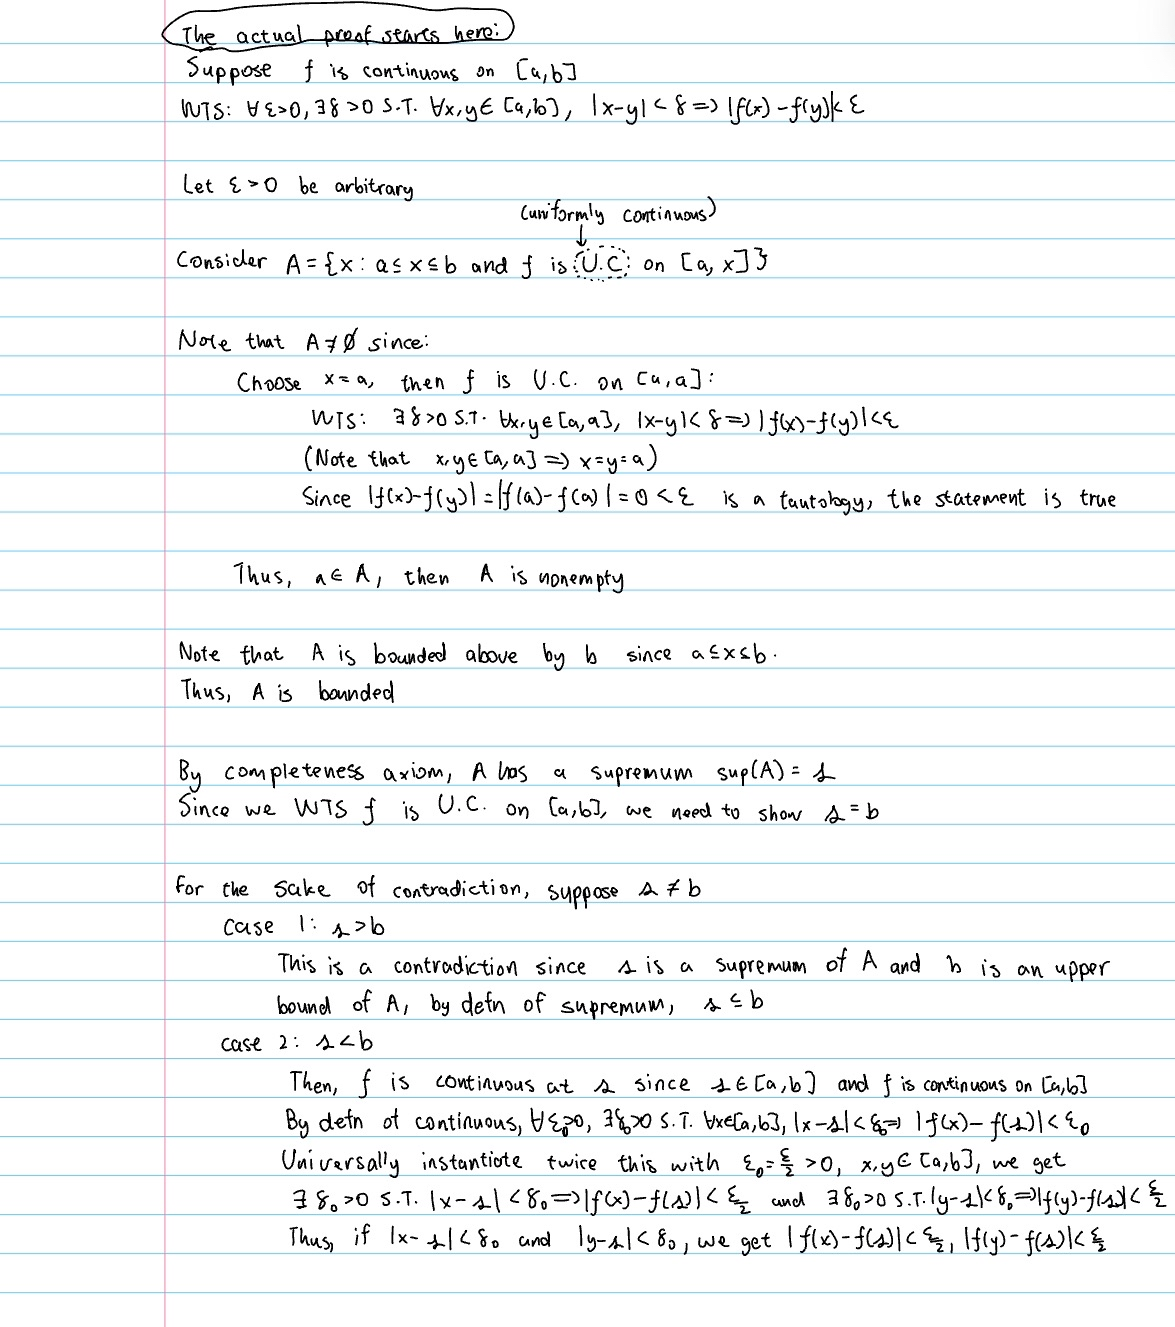 The actual proof starts here:
Suppose f is continuous on [a,b]
WTS: ∀ε>0, ∃δ>0 S.T. ∀x,y∈[a,b], |x-y|<δ=>|f(x)-f(y)|<ε
Let ε>0 be arbitrary
(uniformly continuous)
↓
Consider A={x: a≤x≤b and f is U.C. on [a,x]}
Note that A≠∅ since:
Choose x=a, then f is U.C. on [a,a]:
WTS: ∃δ>0 S.T. ∀x,y∈[a,a], |x-y|<δ=>|f(x)-f(y)|<ε
(Note that x,y∈[a,a]=>x=y=a)
Since |f(x)-f(y)|=|f(a)-f(a)|=0<ε is a tautology, the statement is true
Thus, a∈A, then A is nonempty
Note that A is bounded above by b since a≤x≤b.
Thus, A is bounded
By completeness axiom, A has a supremum sup(A)=s
Since we WTS f is U.C. on [a,b], we need to show s=b
for the sake of contradiction, suppose s≠b
case 1: s>b
This is a contradiction since s is a supremum of A and b is an upper
bound of A, by defn of supremum, s≤b
case 2: s<b
Then, f is continuous at s since s∈[a,b] and f is continuous on [a,b]
By defn of continuous, ∀ε₀>0, ∃δ₀>0 S.T. ∀x∈[a,b], |x-s|<δ₀=>|f(x)-f(s)|<ε₀
Universally instantiate twice this with ε₀=ε/2>0, x,y∈[a,b], we get
∃δ₀>0 S.T. |x-s|<δ₀=>|f(x)-f(s)|<ε/2 and ∃δ₀>0 S.T. |y-s|<δ₀=>|f(y)-f(s)|<ε/2
Thus, if |x-s|<δ₀ and |y-s|<δ₀, we get |f(x)-f(s)|<ε/2, |f(y)-f(s)|<ε/2